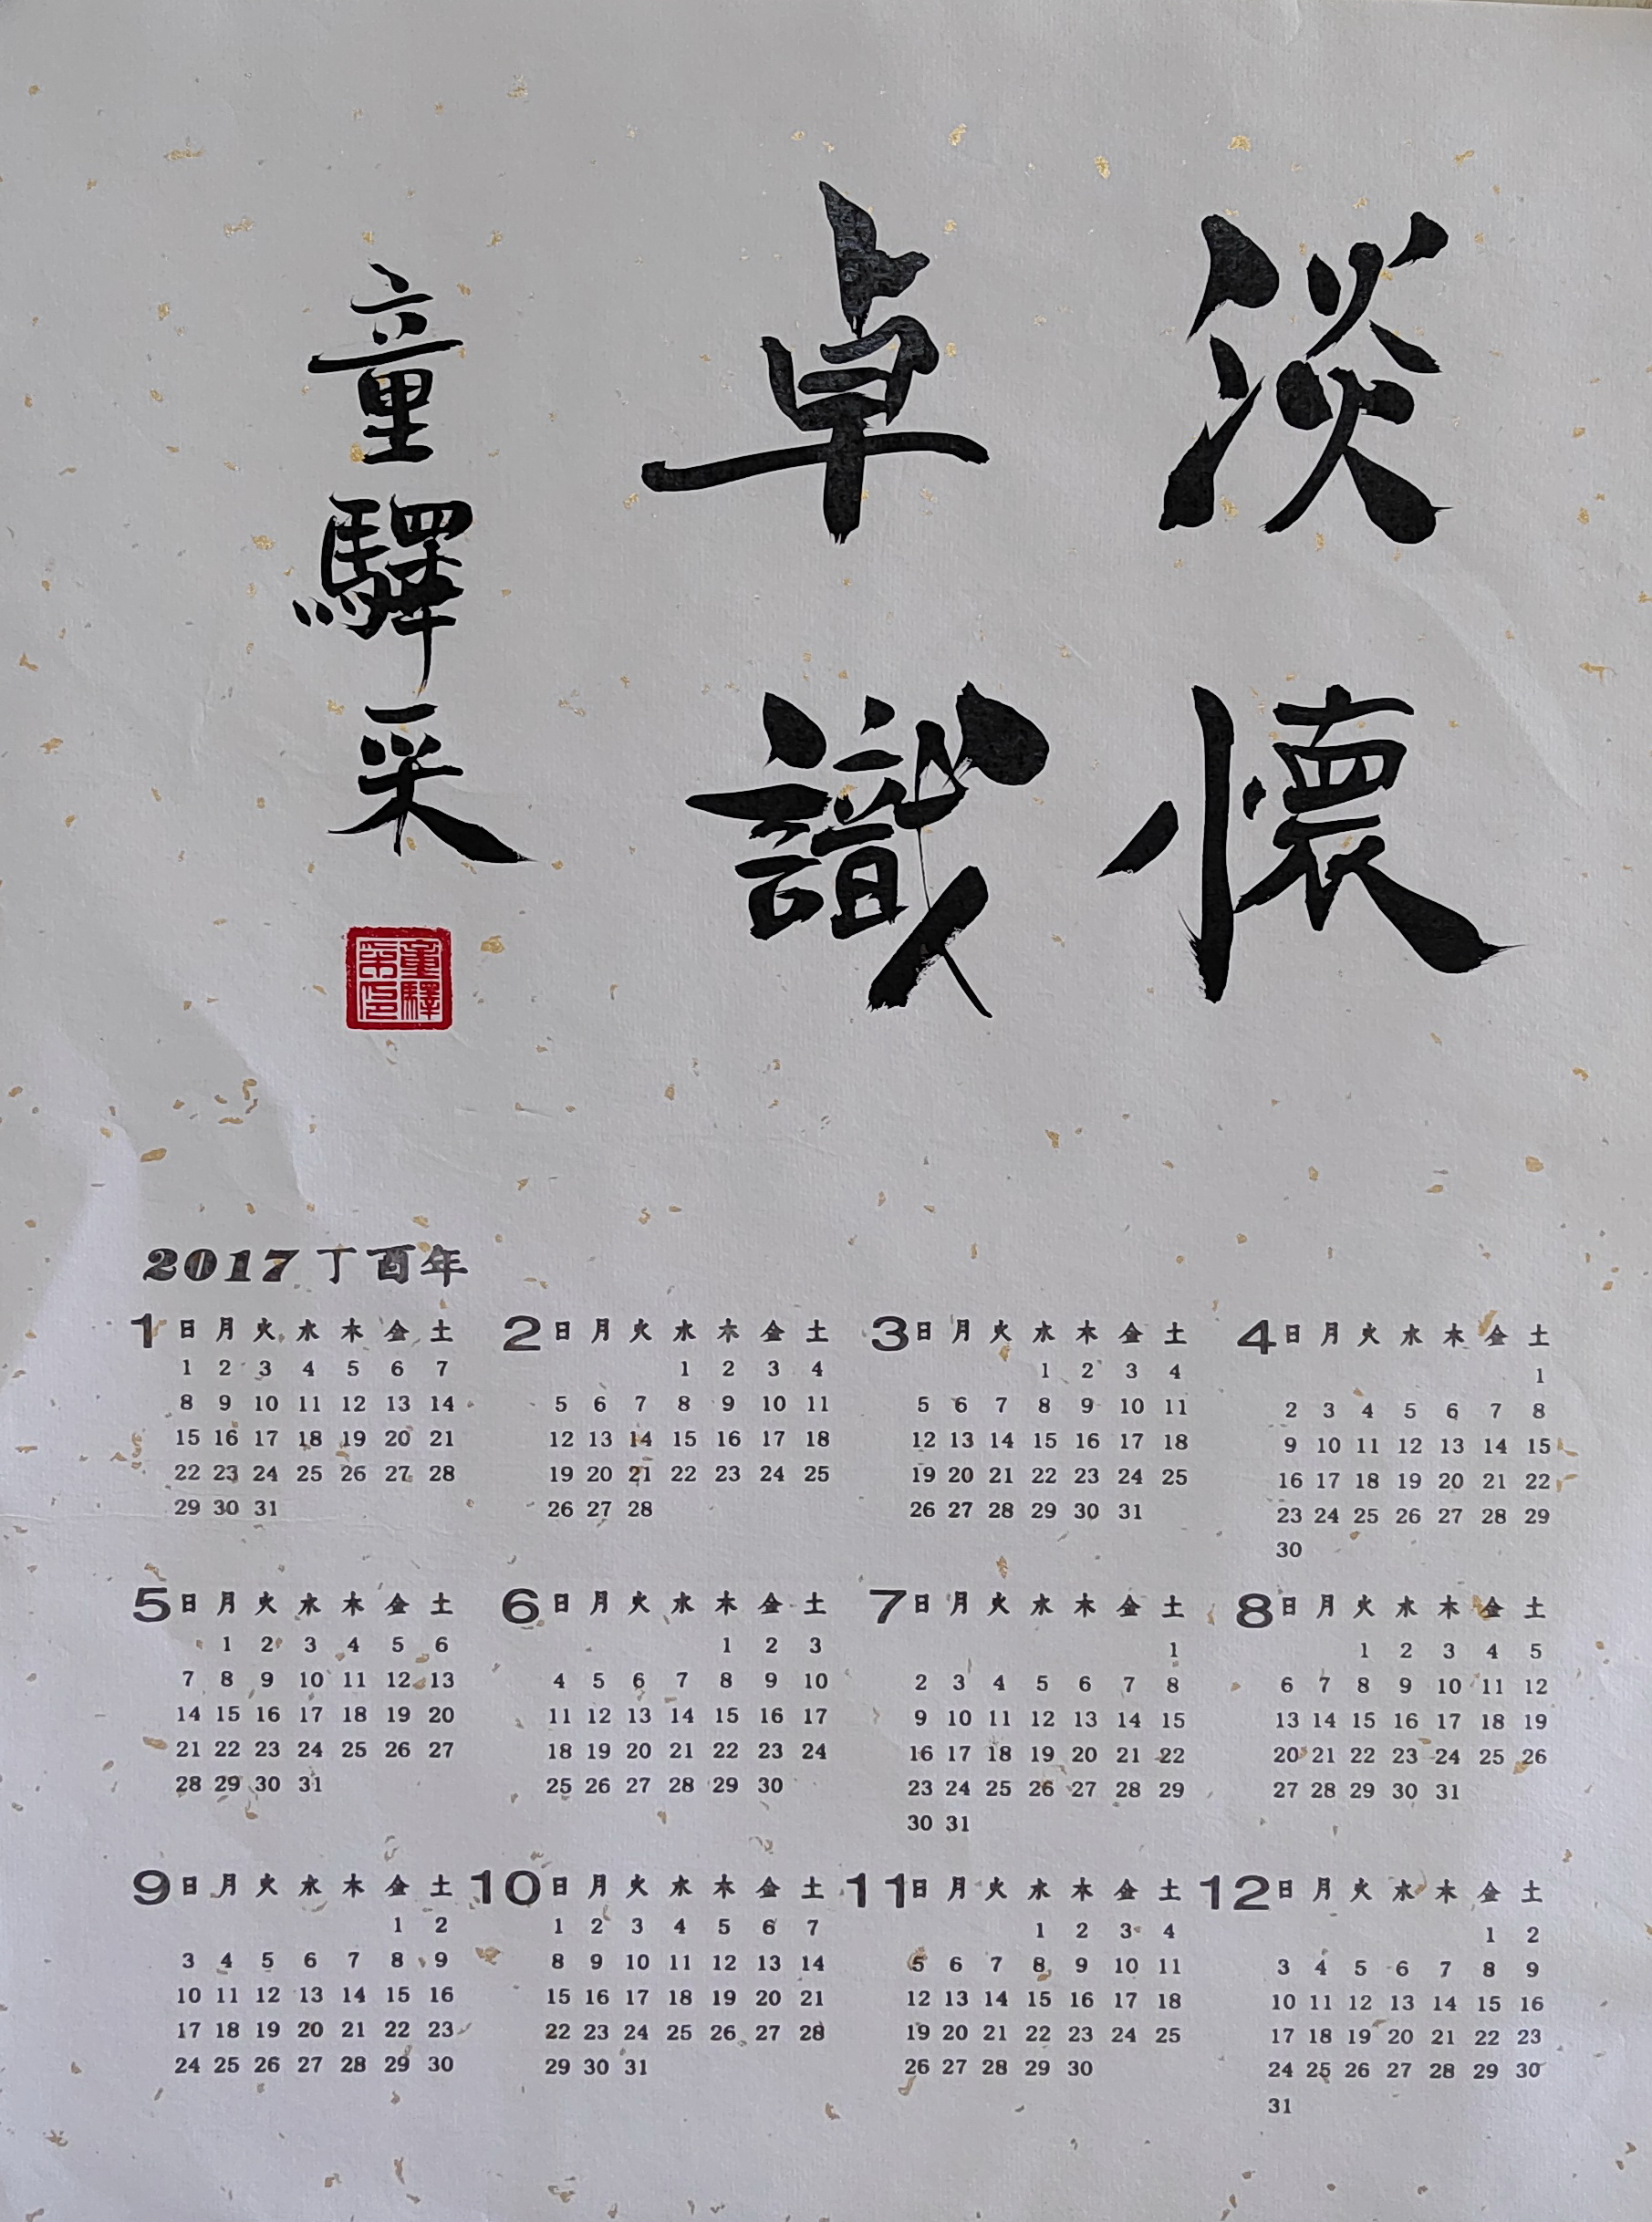 淡懷
卓識
童驛采
童驛
采印
2017 丁酉年
1 日 月 火 水 木 金 土
1 2 3 4 5 6 7
8 9 10 11 12 13 14
15 16 17 18 19 20 21
22 23 24 25 26 27 28
29 30 31
2 日 月 火 水 木 金 土
1 2 3 4
5 6 7 8 9 10 11
12 13 14 15 16 17 18
19 20 21 22 23 24 25
26 27 28
3 日 月 火 水 木 金 土
1 2 3 4
5 6 7 8 9 10 11
12 13 14 15 16 17 18
19 20 21 22 23 24 25
26 27 28 29 30 31
4 日 月 火 水 木 金 土
1
2 3 4 5 6 7 8
9 10 11 12 13 14 15
16 17 18 19 20 21 22
23 24 25 26 27 28 29
30
5 日 月 火 水 木 金 土
1 2 3 4 5 6
7 8 9 10 11 12 13
14 15 16 17 18 19 20
21 22 23 24 25 26 27
28 29 30 31
6 日 月 火 水 木 金 土
1 2 3
4 5 6 7 8 9 10
11 12 13 14 15 16 17
18 19 20 21 22 23 24
25 26 27 28 29 30
7 日 月 火 水 木 金 土
1
2 3 4 5 6 7 8
9 10 11 12 13 14 15
16 17 18 19 20 21 22
23 24 25 26 27 28 29
30 31
8 日 月 火 水 木 金 土
1 2 3 4 5
6 7 8 9 10 11 12
13 14 15 16 17 18 19
20 21 22 23 24 25 26
27 28 29 30 31
9 日 月 火 水 木 金 土
1 2
3 4 5 6 7 8 9
10 11 12 13 14 15 16
17 18 19 20 21 22 23
24 25 26 27 28 29 30
10 日 月 火 水 木 金 土
1 2 3 4 5 6 7
8 9 10 11 12 13 14
15 16 17 18 19 20 21
22 23 24 25 26 27 28
29 30 31
11 日 月 火 水 木 金 土
1 2 3 4
5 6 7 8 9 10 11
12 13 14 15 16 17 18
19 20 21 22 23 24 25
26 27 28 29 30
12 日 月 火 水 木 金 土
1 2
3 4 5 6 7 8 9
10 11 12 13 14 15 16
17 18 19 20 21 22 23
24 25 26 27 28 29 30
31